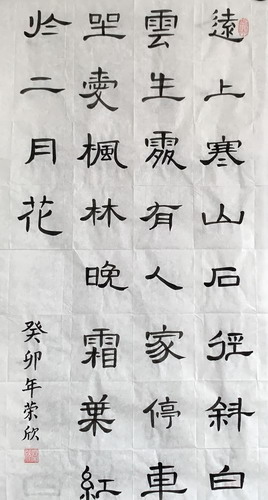 遠上寒山石徑斜白
雲生處有人家停車
坐愛楓林晚霜葉紅
於二月花
癸卯年荣欣